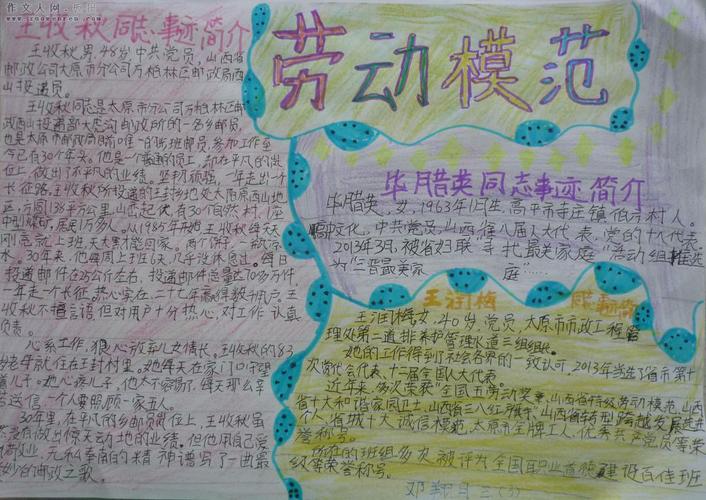 作文人网
王收秋同志事迹简介
王收秋,男,48岁,中共党员,山西省
邮政公司太原市分公司万柏林区邮政局西
山投递员。
王收秋同志是太原市分公司万柏林区邮
政西山投递部大虎峪邮政所的一名乡邮员,
也是太原市邮政局唯一的跑班邮员,参加工作至
今已有30个年头。他是一个普通的员工,却在平凡的岗
位上,做出了不平凡的业绩。坚韧顽强,一年走出一个
长征路。王收秋所投递的王封乡地处太原西山地
区,方圆138平方公里,山峦起伏,有30个自然村,
中型煤矿,居民1万多人。从1985年开始,王收秋每天
刚亮就上班,天大黑才能回家。两个饼,一瓶凉
水,30年来,他每周上班6天,几乎没休息过。每日
投递邮件在35公斤左右,投递邮件总量达70多万件,
一年走一个长征。热心
收秋不擅言语但对用户十分热心,对工作认真
负责。
心系工作,狠心放弃儿女情长。王收秋的83
岁老母就住在王封村里。她每天在家门口盼望
着儿子。她心疼儿子,他太不容易了,每天那么辛
苦送信,一个人要照顾一家五人。
30年里,在平凡的乡邮员岗位上,王收秋虽
然没有做出惊天动地的业绩,但他用自己爱
岗敬业,无私奉献的精神谱写了一曲最
美妙的邮政之歌。
劳动模范
毕腊英同志事迹简介
毕腊英,女,1963年1月生,高平市寺庄镇伯方村人。
高中文化,中共党员,山西省八届人大代表,党的十八代表。
2013年3月,被省妇联“寻找最美家庭”活动组推选
为“三晋最美家庭……
王润梅同志事迹简
王润梅,女,40岁,党员,太原市市政工程管
理处第二道排养护管理队道三组组长。
她的工作得到了社会各界的一致认可,2013年当选了省市第十
次党代会代表、十二届全国人大代表。
近年来,多次荣获“全国五一劳动奖章、山西省特级劳动模范、山西
省十大和谐家园卫士、山西省三八红旗手、山西省转型跨越发展进
个人、省城十大诚信模范,太原市金牌工人、优秀共产党员等荣
誉称号。
所在的班组多次被评为全国职业道德建设百佳班
级等荣誉称号。
邓翔